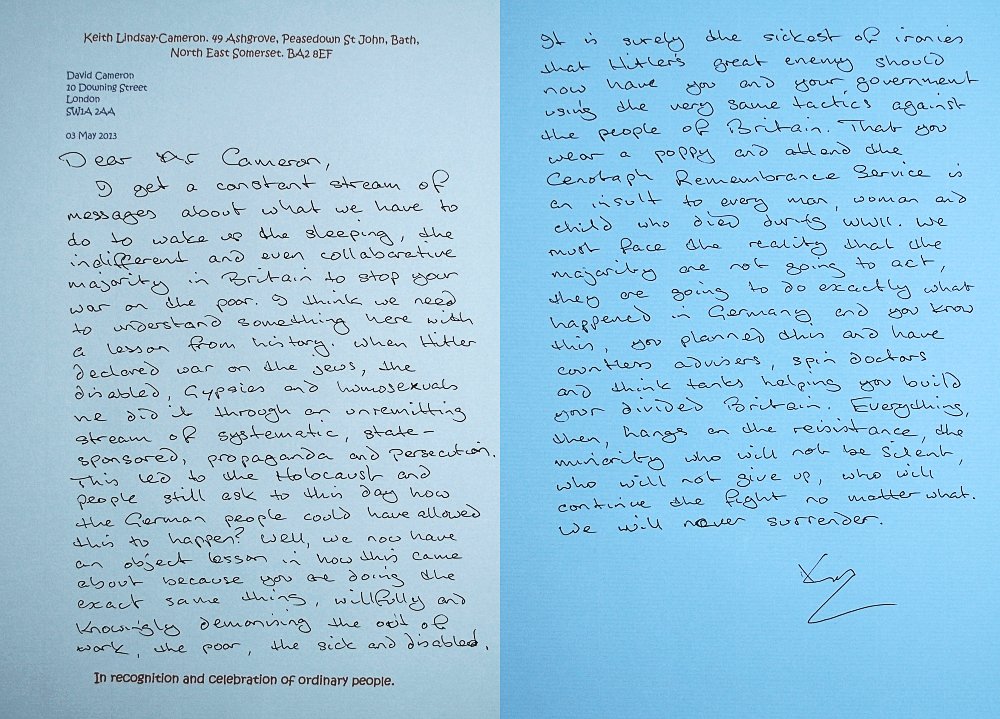 Keith Lindsay-Cameron. 49 Ashgrove, Peasedown St John, Bath,
North East Somerset. BA2 8EF
David Cameron
10 Downing Street
London
SW1A 2AA
03 May 2013
Dear Mr Cameron,
I get a constant stream of
messages about what we have to
do to wake up the sleeping, the
indifferent and even collaborative
majority in Britain to stop your
war on the poor. I think we need
to understand something here with
a lesson from history. When Hitler
declared war on the Jews, the
disabled, Gypsies and homosexuals
he did it through an unremitting
stream of systematic, state-
sponsored, propaganda and persecution.
This led to the Holocaust and
people still ask to this day how
the German people could have allowed
this to happen? Well, we now have
an object lesson in how this came
about because you are doing the
exact same thing, willfully and
knowingly demonising the out of
work, the poor, the sick and disabled.
In recognition and celebration of ordinary people.
It is surely the sickest of ironies
that Hitler's great enemy should
now have you and your government
using the very same tactics against
the people of Britain. That you
wear a poppy and attend the
Cenotaph Remembrance Service is
an insult to every man, woman and
child who died during WWII. We
must face the reality that the
majority are not going to act,
they are going to do exactly what
happened in Germany and you know
this, you planned this and have
countless advisers, spin doctors
and think tanks helping you build
your divided Britain. Everything,
then, hangs on the resistance, the
minority who will not be silent,
who will not give up, who will
continue the fight no matter what.
We will never surrender.